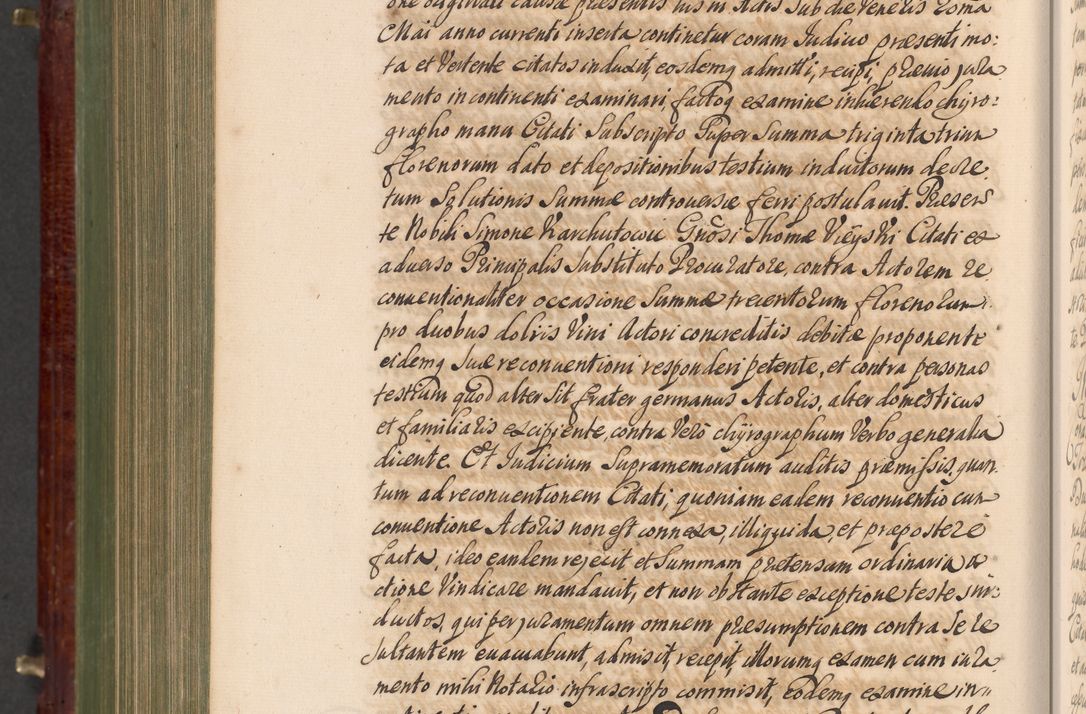 one originali causæ præsentis his in Actis sub die Veneris 20ma
Maii anno currenti inserta continetur coram Iudicio præsenti mo:
ta et Vertente citatos induxit, eosdemq admitti, recipi, prævio jura
mento in continenti examinari, factoq examine inhærendo chyro:
grapho manu Citati Subscripto Super Summa triginta trium
florenorum dato et depositionibus testium inductorum decre
tum Solutionis Summæ controversæ ferri postulavit. Præsen
te Nobili Simone Karchutowic Gnosi Thomæ Citati ex
adverso Principalis Substituto Procuratore, contra Actorem re
conventionaliter occasione Summæ trecentorum florenorum
pro duobus doliis Vini Actori concreditis debitæ proponente
eidemq Suæ reconventioni responderi petente, et contra personas
testium quod alter sit frater germanus Actoris, alter domesticus
et familiaris excipiente, contra Vero chyrographum Verbo generalia
dicente. Et Iudicium Supramemoratum auditis præmissis, quan
tum ad reconventionem Citati, quoniam eadem reconventio cum
conventione Actoris non est connexa, illiquida, et præpostere
facta, ideo eandem rejecit et Summam prætensam ordinaria a
ctione Vindicare mandavit, et non obstante exceptione testes in:
ductos, qui per juramentum omnem præsumptionem contra Se re
sultantem evacuabunt, admisit, recepit, illorumq examen cum jura
mento mihi Notario infrascripto commisit, eodemq examine in